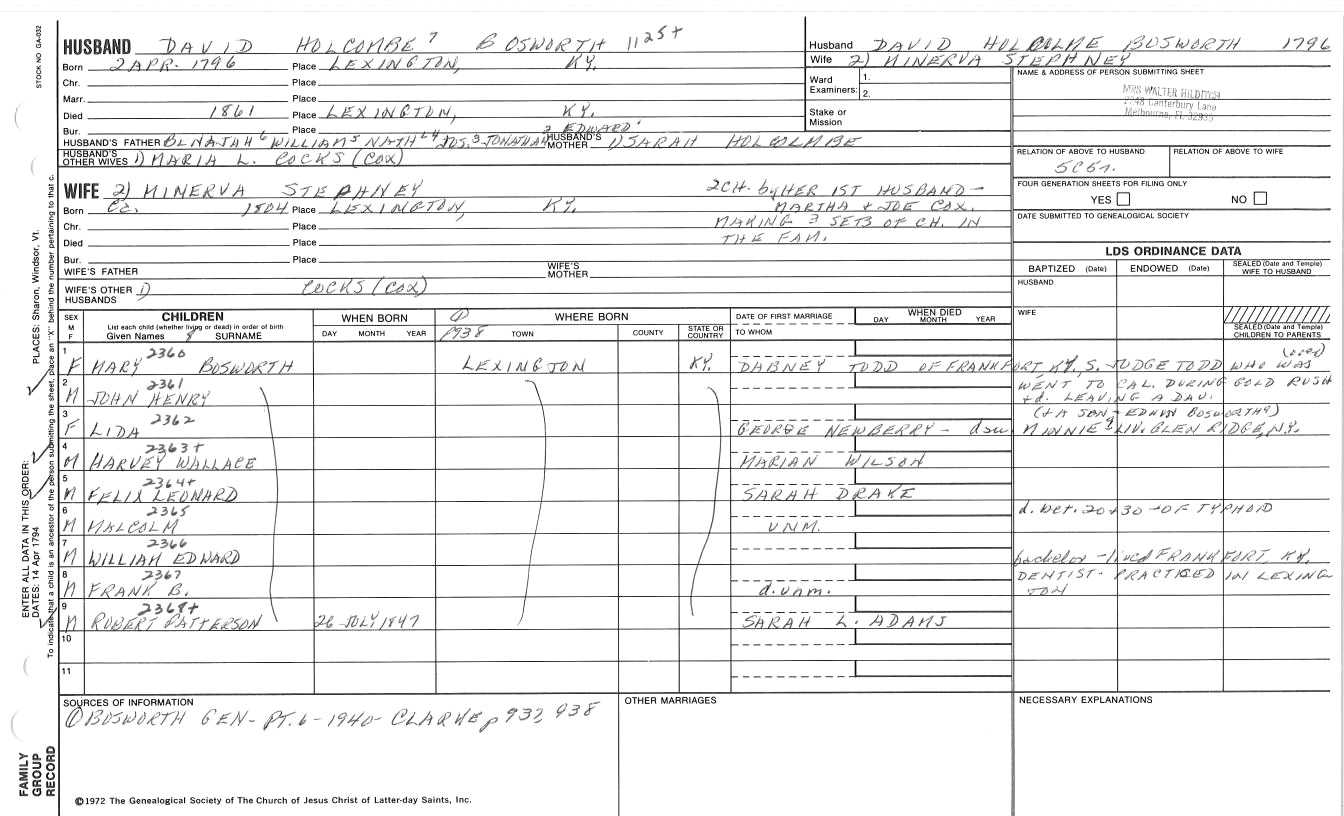 STOCK NO GA-032
HUSBAND DAVID HOLCOMBE 7 BOSWORTH 1125+
Born 2 APR. 1796 Place LEXINGTON, KY.
Chr. Place
Marr. Place
Died 1861 Place LEXINGTON, KY.
Bur. Place
HUSBAND'S FATHER BENAJAH 6 WILLIAM 5 NATH'L 4 JOS. 3 JONATHAN 2 EDWARD 1 HUSBAND'S MOTHER 1) SARAH HOLCOLMBE
HUSBAND'S OTHER WIVES 1) MARIA L. COCKS (COX)
WIFE 2) MINERVA STEPHNEY
Born Ca. 1804 Place LEXINGTON, KY.
Chr. Place
Died Place
Bur. Place
2 CH. by HER 1ST HUSBAND -
MARTHA & JOE COX.
MAKING 3 SETS OF CH. IN
THE FAM.
WIFE'S FATHER WIFE'S MOTHER
WIFE'S OTHER HUSBANDS 1) COCKS (COX)
Husband DAVID HOLCOLME BOSWORTH 1796
Wife 2) MINERVA STEPHNEY
Ward Examiners: 1. 2.
Stake or Mission
NAME & ADDRESS OF PERSON SUBMITTING SHEET
MRS WALTER
1748 Canterbury Lane
Melbourne, FL 32935
RELATION OF ABOVE TO HUSBAND RELATION OF ABOVE TO WIFE
5C6r.
FOUR GENERATION SHEETS FOR FILING ONLY
YES NO
DATE SUBMITTED TO GENEALOGICAL SOCIETY
LDS ORDINANCE DATA
BAPTIZED (Date) ENDOWED (Date) SEALED (Date and Temple) WIFE TO HUSBAND
HUSBAND
WIFE
SEALED (Date and Temple) CHILDREN TO PARENTS
SEX M F CHILDREN List each child (whether living or dead) in order of birth Given Names 8 SURNAME
WHEN BORN DAY MONTH YEAR
① p938 WHERE BORN TOWN COUNTY STATE OR COUNTRY
DATE OF FIRST MARRIAGE TO WHOM
WHEN DIED DAY MONTH YEAR
1 F 2360 MARY BOSWORTH LEXINGTON KY. DABNEY TODD OF FRANKFORT, KY. S. JUDGE TODD WHO WAS
2 M 2361 JOHN HENRY WENT TO CAL. DURING GOLD RUSH
+ d. LEAVING A DAU.
(+ A SON - EDWIN BOSWORTH 9)
3 F 2362 LIDA GEORGE NEWBERRY - MINNIE 9 LIV. GLEN RIDGE, N.Y.
4 M 2363+ HARVEY WALLACE MARIAN WILSON
5 M 2364+ FELIX LEONARD SARAH DRAKE
6 M 2365 MALCOLM UNM. d. bet. 20 + 30 - OF TYPHOID
7 M 2366 WILLIAM EDWARD bachelor - lived FRANKFORT, KY.
8 M 2367 FRANK B. d. unm. DENTIST - PRACTICED IN LEXINGTON
9 M 2368+ ROBERT PATTERSON 26 JULY 1847 SARAH L. ADAMS
10
11
SOURCES OF INFORMATION
① BOSWORTH GEN - PT. 6 - 1940 - CLARKE p 937, 938
OTHER MARRIAGES
NECESSARY EXPLANATIONS
©1972 The Genealogical Society of The Church of Jesus Christ of Latter-day Saints, Inc.
FAMILY GROUP RECORD
ENTER ALL DATA IN THIS ORDER:
DATES: 14 Apr 1794
PLACES: Sharon, Windsor, Vt.
To indicate that a child is an ancestor of the person submitting the sheet, place an "X" behind the number pertaining to that c.